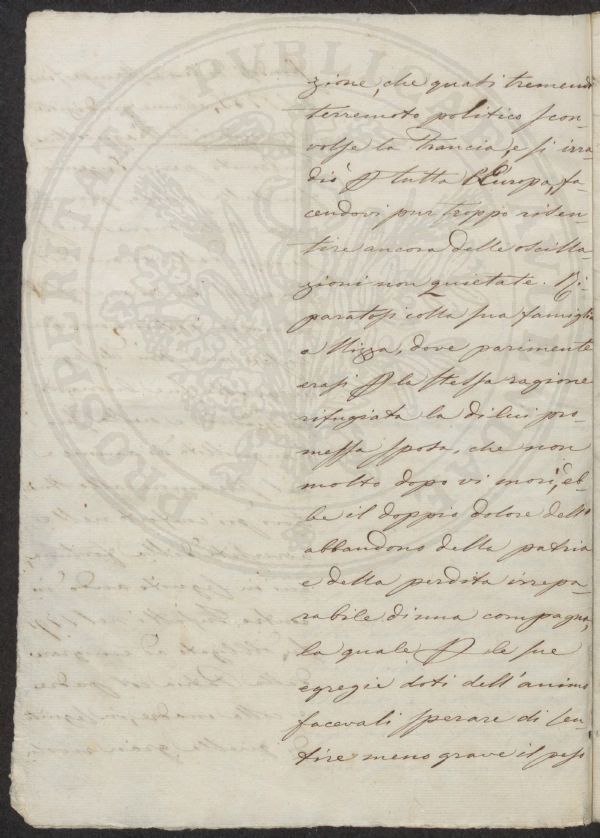 zione, che quasi tremendo
terremoto politico scon-
volse la Francia, e si irra-
diò p tutta l'Europa, fa-
cendovi pur troppo risen-
tire ancora delle oscilla-
zioni non quietate. Ri-
paratosi colla sua famiglia
a Nizza, dove parimente
erasi p la stessa ragione
rifugiata la di lui pro-
messa sposa, che non
molto dopo vi morì, eb-
be il doppio dolore dell'
abbandono della patria
e della perdita irrepa-
rabile di una compagna,
la quale p le sue
egregie doti dell'animo
facevali sperare di sen-
tire meno grave il peso
PROSPERITATI PUBLICAE AUGENDAE